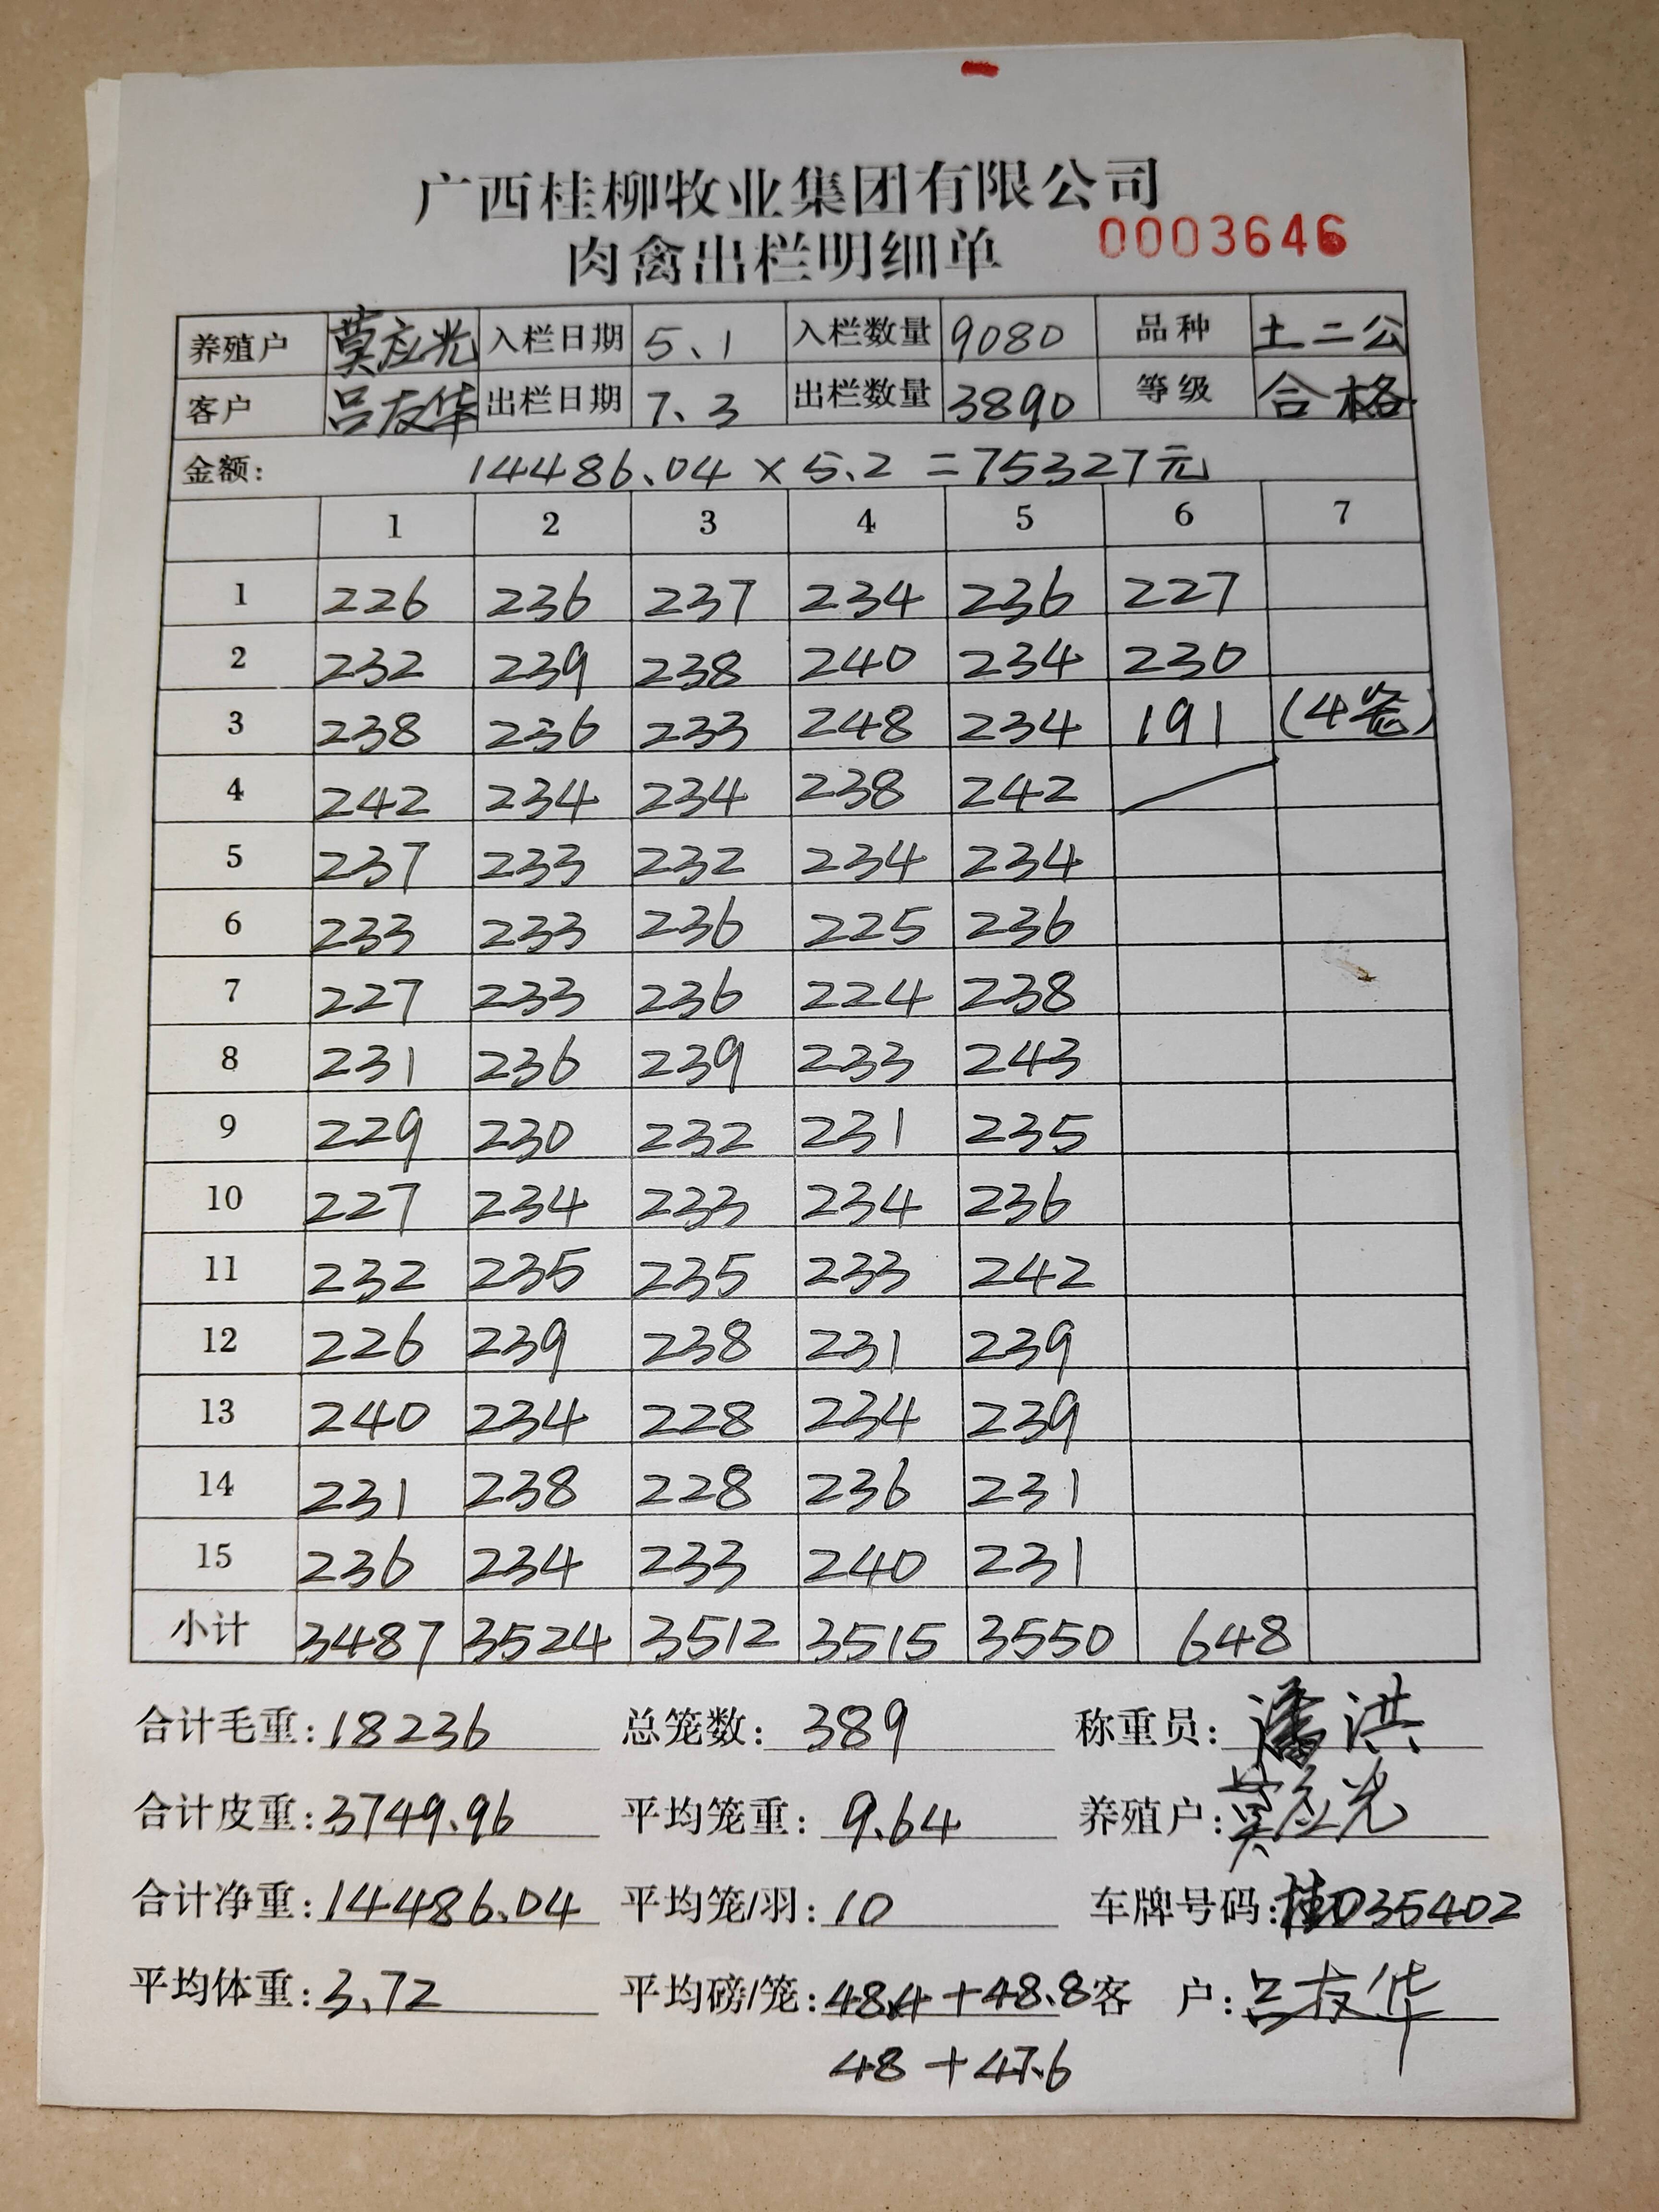 广西桂柳牧业集团有限公司
肉禽出栏明细单 0003646
养殖户 莫应光 入栏日期 5.1 入栏数量 9080 品种 土二公
客户 吕友华 出栏日期 7.3 出栏数量 3890 等级 合格
金额: 14486.04 × 5.2 = 75327元
1 2 3 4 5 6 7
1 226 236 237 234 236 227
2 232 239 238 240 234 230
3 238 236 233 248 234 191 (4笼)
4 242 234 234 238 242
5 237 233 232 234 234
6 233 233 236 225 236
7 227 233 236 224 238
8 231 236 239 233 243
9 229 230 232 231 235
10 227 234 233 234 236
11 232 235 235 233 242
12 226 239 238 231 239
13 240 234 228 234 239
14 231 238 228 236 231
15 236 234 233 240 231
小计 3487 3524 3512 3515 3550 648
合计毛重: 18236 总笼数: 389 称重员: 潘洪
合计皮重: 3749.96 平均笼重: 9.64 养殖户: 莫应光
合计净重: 14486.04 平均笼/羽: 10 车牌号码: 桂D35402
平均体重: 3.72 平均磅/笼: 48.4+48.8 客 户: 吕友华
48+47.6